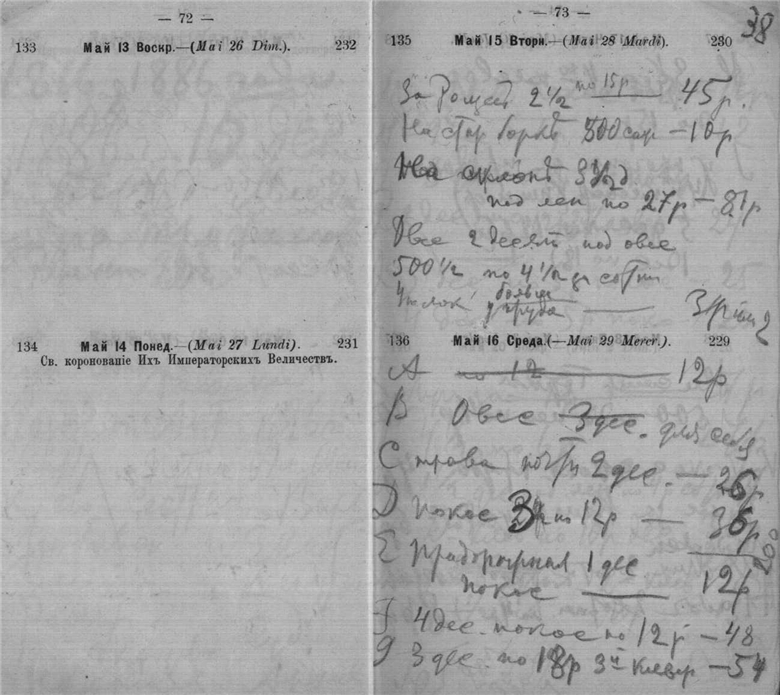 — 72 —
133 Май 13 Воскр.—(Mai 26 Dim.). 232
134 Май 14 Понед.—(Mai 27 Lundi). 231
Св. коронованіе Ихъ Императорскихъ Величествъ.
— 73 —
38
135 Май 15 Вторн.—(Mai 28 Mardi). 230
За Рощей 2½ по 15р 45р.
На стор 500 саж — 10р
На склонѣ 3½ д
под лен по 27р — 81р
Овсе 2 десят под овсе
500½ по 4½ за сотни
у пруда
136 Май 16 Среда.(—Mai 29 Mercr.). 229
A по 12 12р
B Овсе 3 дес. для себя
C трава 2 дес. — 26р
D Покос 3 по 12р — 36р
200
E Придорожная 1 дес
покос — 12р
F 4 дес. покос по 12р — 48
g 3 дес. по 18р 3й клевер — 54